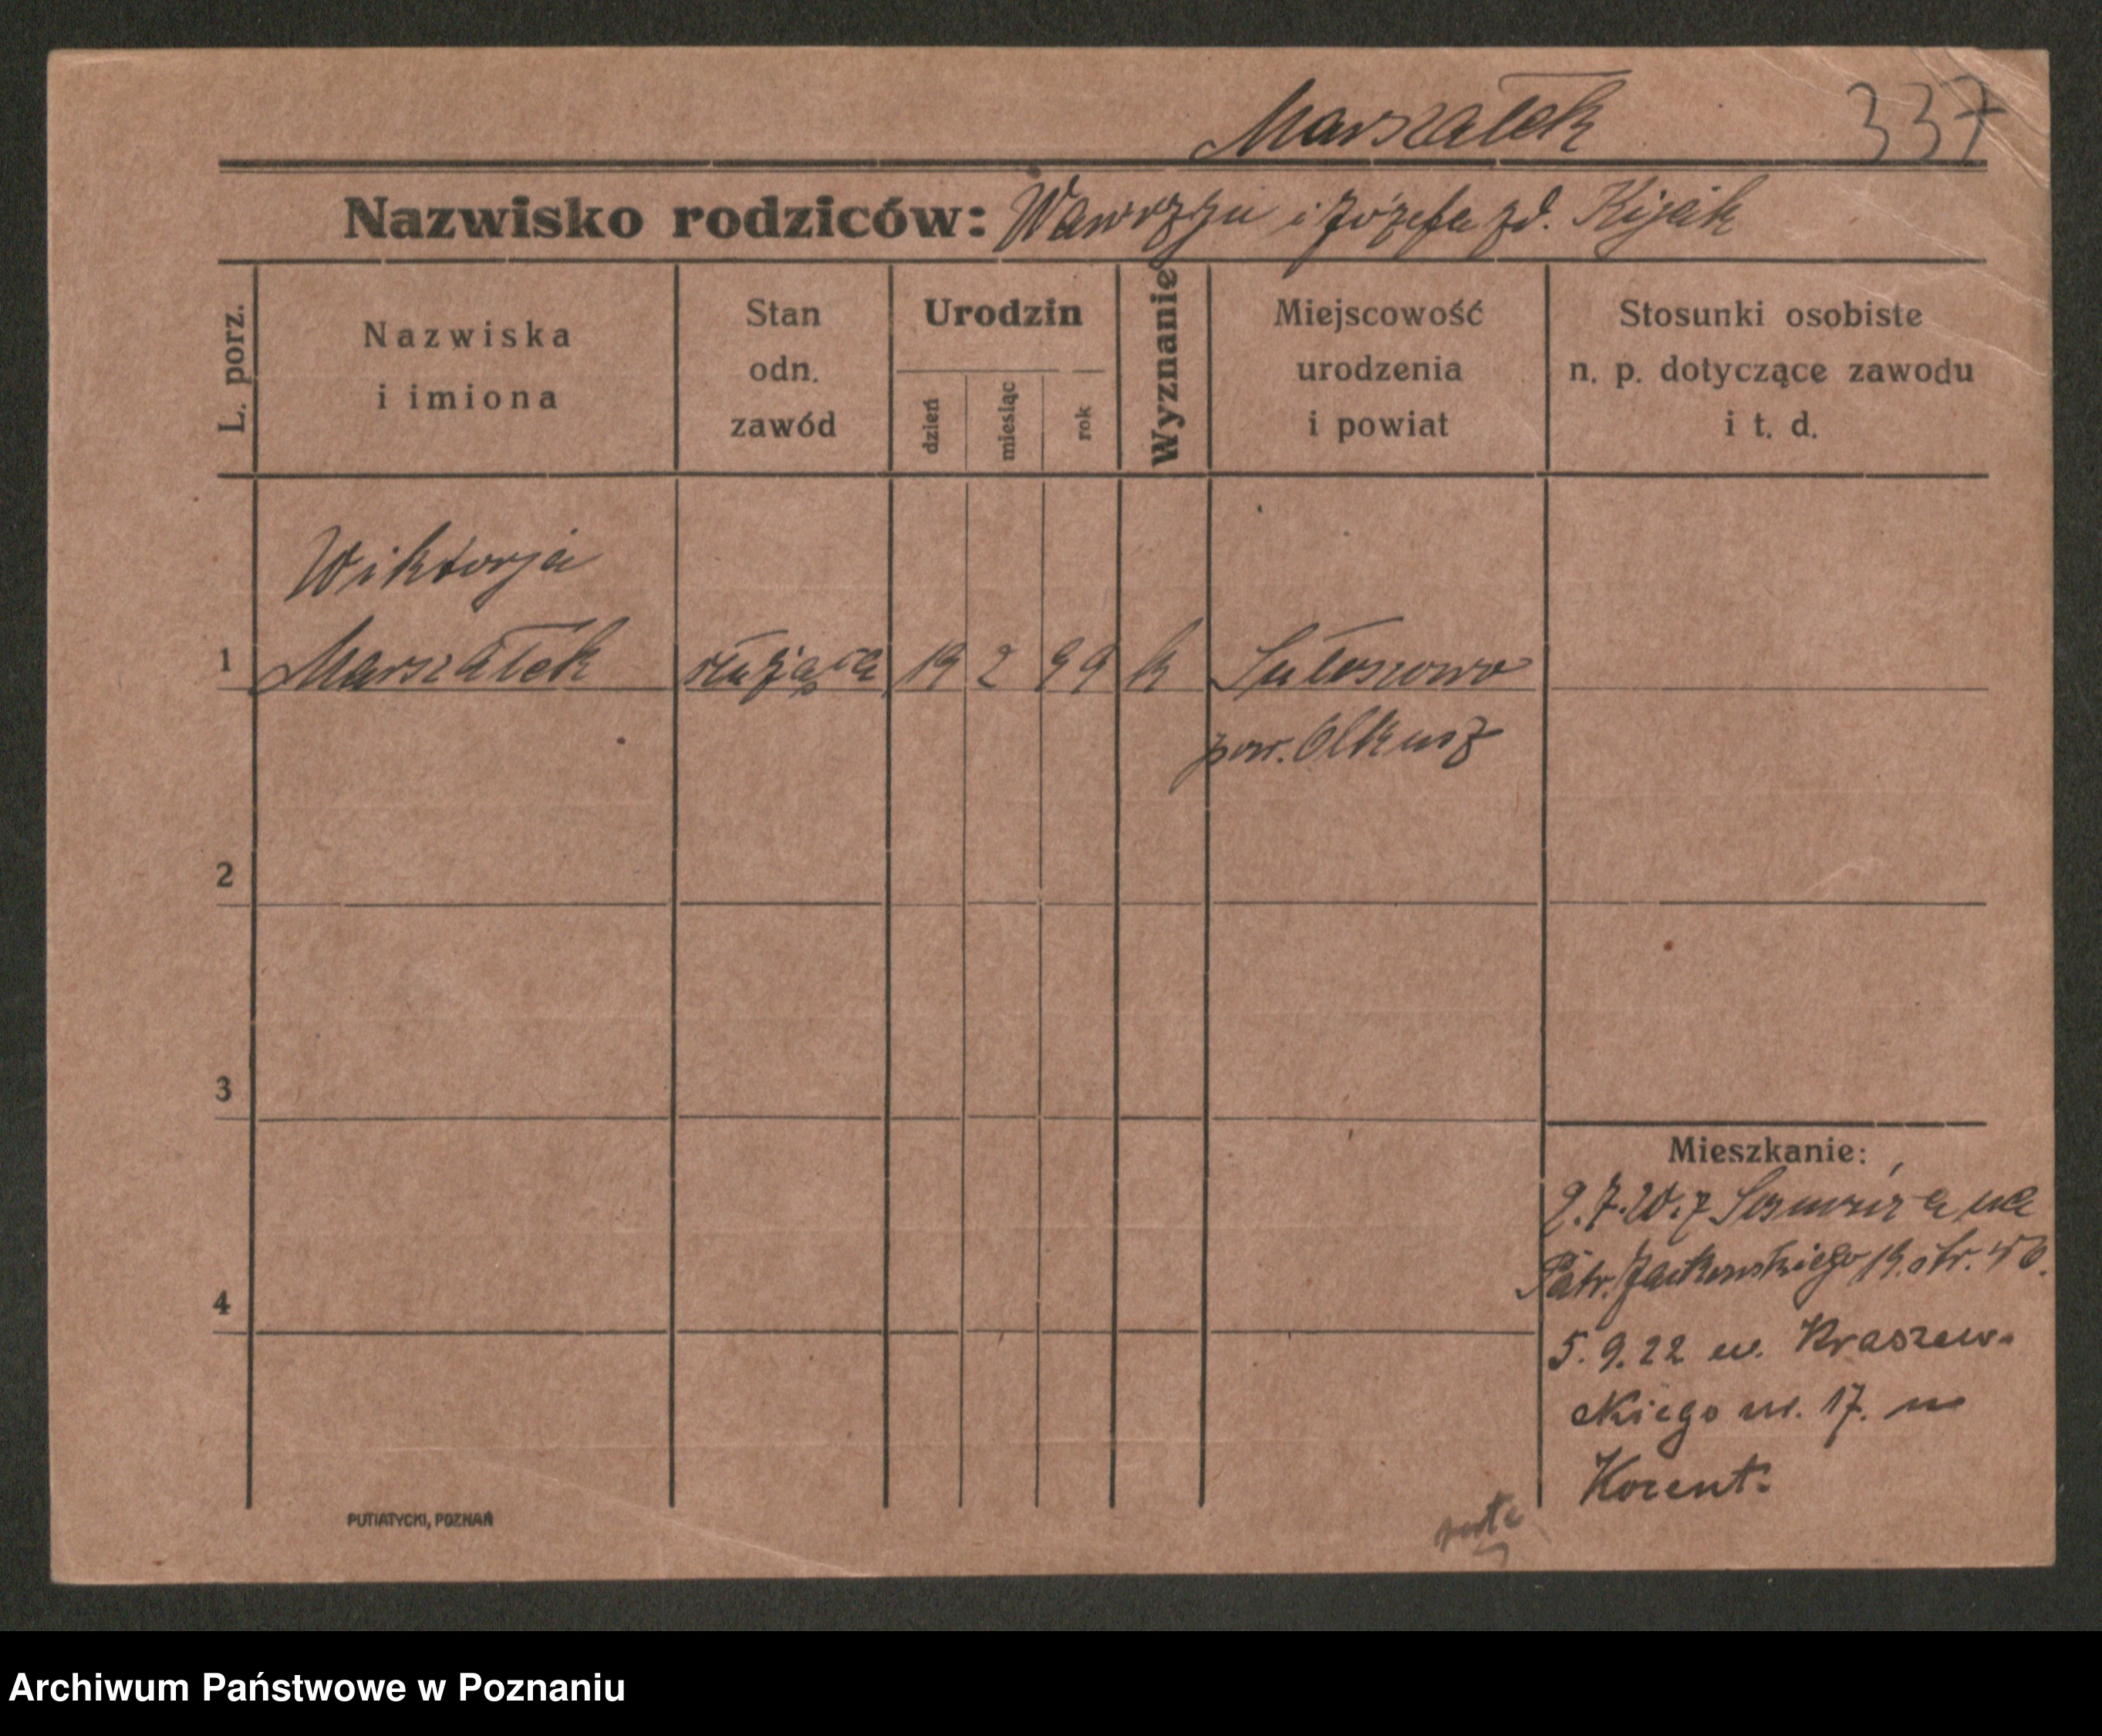 Marszałek 337
Nazwisko rodziców: Wawrzyn i Józefa zd. Kijak
L. porz.
Nazwiska
i imiona
Stan
odn.
zawód
Urodzin
dzień
miesiąc
rok
Wyznanie
Miejscowość
urodzenia
i powiat
Stosunki osobiste
n. p. dotyczące zawodu
i t. d.
Wiktorja
1 Marszałek służąca 19 2 99 k Sułoszowo
pow. Olkusz
2
3
4
Mieszkanie:
2.7.20. z Sosnowca na
Patr. Jackowskiego 19. str. 40.
5.9.22 ul. Kraszew-
skiego nr. 17.
Kocent.
PUTIATYCKI, POZNAŃ
Archiwum Państwowe w Poznaniu